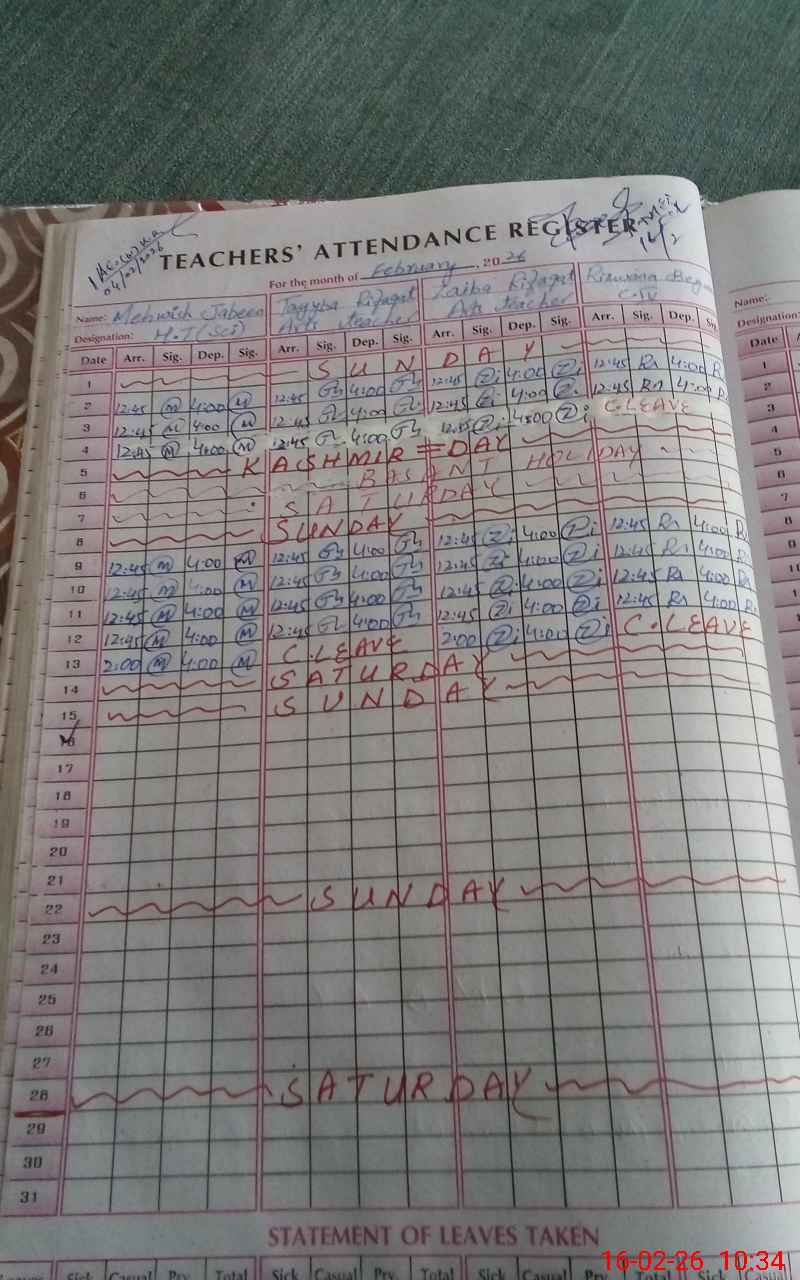 04/02/2026
16/2
TEACHERS' ATTENDANCE REGISTER
For the month of February, 2026
Name: Mehwish Jabeen Tayyba Rifaqat Laiba Rifaqat Rizwana Beg Name:
Designation: M.T (Sci) Arts teacher Arts teacher C-IV Designation:
Date Arr. Sig. Dep. Sig. Arr. Sig. Dep. Sig. Arr. Sig. Dep. Sig. Arr. Sig. Dep. Date
1 SUNDAY 1
2 12:45 M 4:00 M 12:45 4:00 12:45 4:00 12:45 Rn 4:00 2
3 12:45 M 4:00 M 12:45 4:00 12:45 4:00 12:45 Rn 4:00 3
4 12:45 M 4:00 M 12:45 4:00 12:45 4:00 C.LEAVE 4
5 KASHMIR = DAY 5
6 BASANT HOLIDAY 6
7 SATURDAY 7
8 SUNDAY 8
9 12:45 M 4:00 M 12:45 4:00 12:45 4:00 12:45 Rn 4:00 9
10 12:45 M 4:00 M 12:45 4:00 12:45 4:00 12:45 Rn 4:00 10
11 12:45 M 4:00 M 12:45 4:00 12:45 4:00 12:45 Rn 4:00 11
12 12:45 M 4:00 M 12:45 4:00 12:45 4:00 12:45 Rn 4:00 12
13 2:00 M 4:00 M C.LEAVE 2:00 4:00 C.LEAVE 13
14 SATURDAY 14
15 SUNDAY 15
16
17
18
19
20
21
22 SUNDAY
23
24
25
26
27
28 SATURDAY
29
30
31
STATEMENT OF LEAVES TAKEN
Sick Casual Prv. Total Sick Casual Prv. Total Sick Casual Prv.
16-02-26 10:34